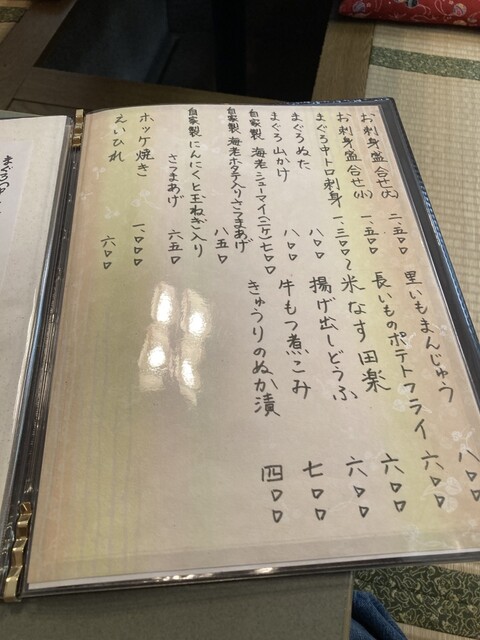 お刺身盛合せ(大) 二、五〇〇
お刺身盛合せ(小) 一、五〇〇
まぐろ中トロ刺身 一、三〇〇〜
まぐろぬた 八〇〇
まぐろ山かけ 八〇〇
自家製 海老シューマイ(二ケ) 七〇〇
自家製 海老ホタテ入りさつまあげ 八五〇
自家製 にんにくと玉ねぎ入り
さつまあげ 六五〇
ホッケ焼き 一、〇〇〇
えいひれ 六〇〇
里いもまんじゅう 八〇〇
長いものポテトフライ 六〇〇
米なす田楽 六〇〇
揚げ出しどうふ 六〇〇
牛もつ煮こみ 七〇〇
きゅうりのぬか漬 四〇〇